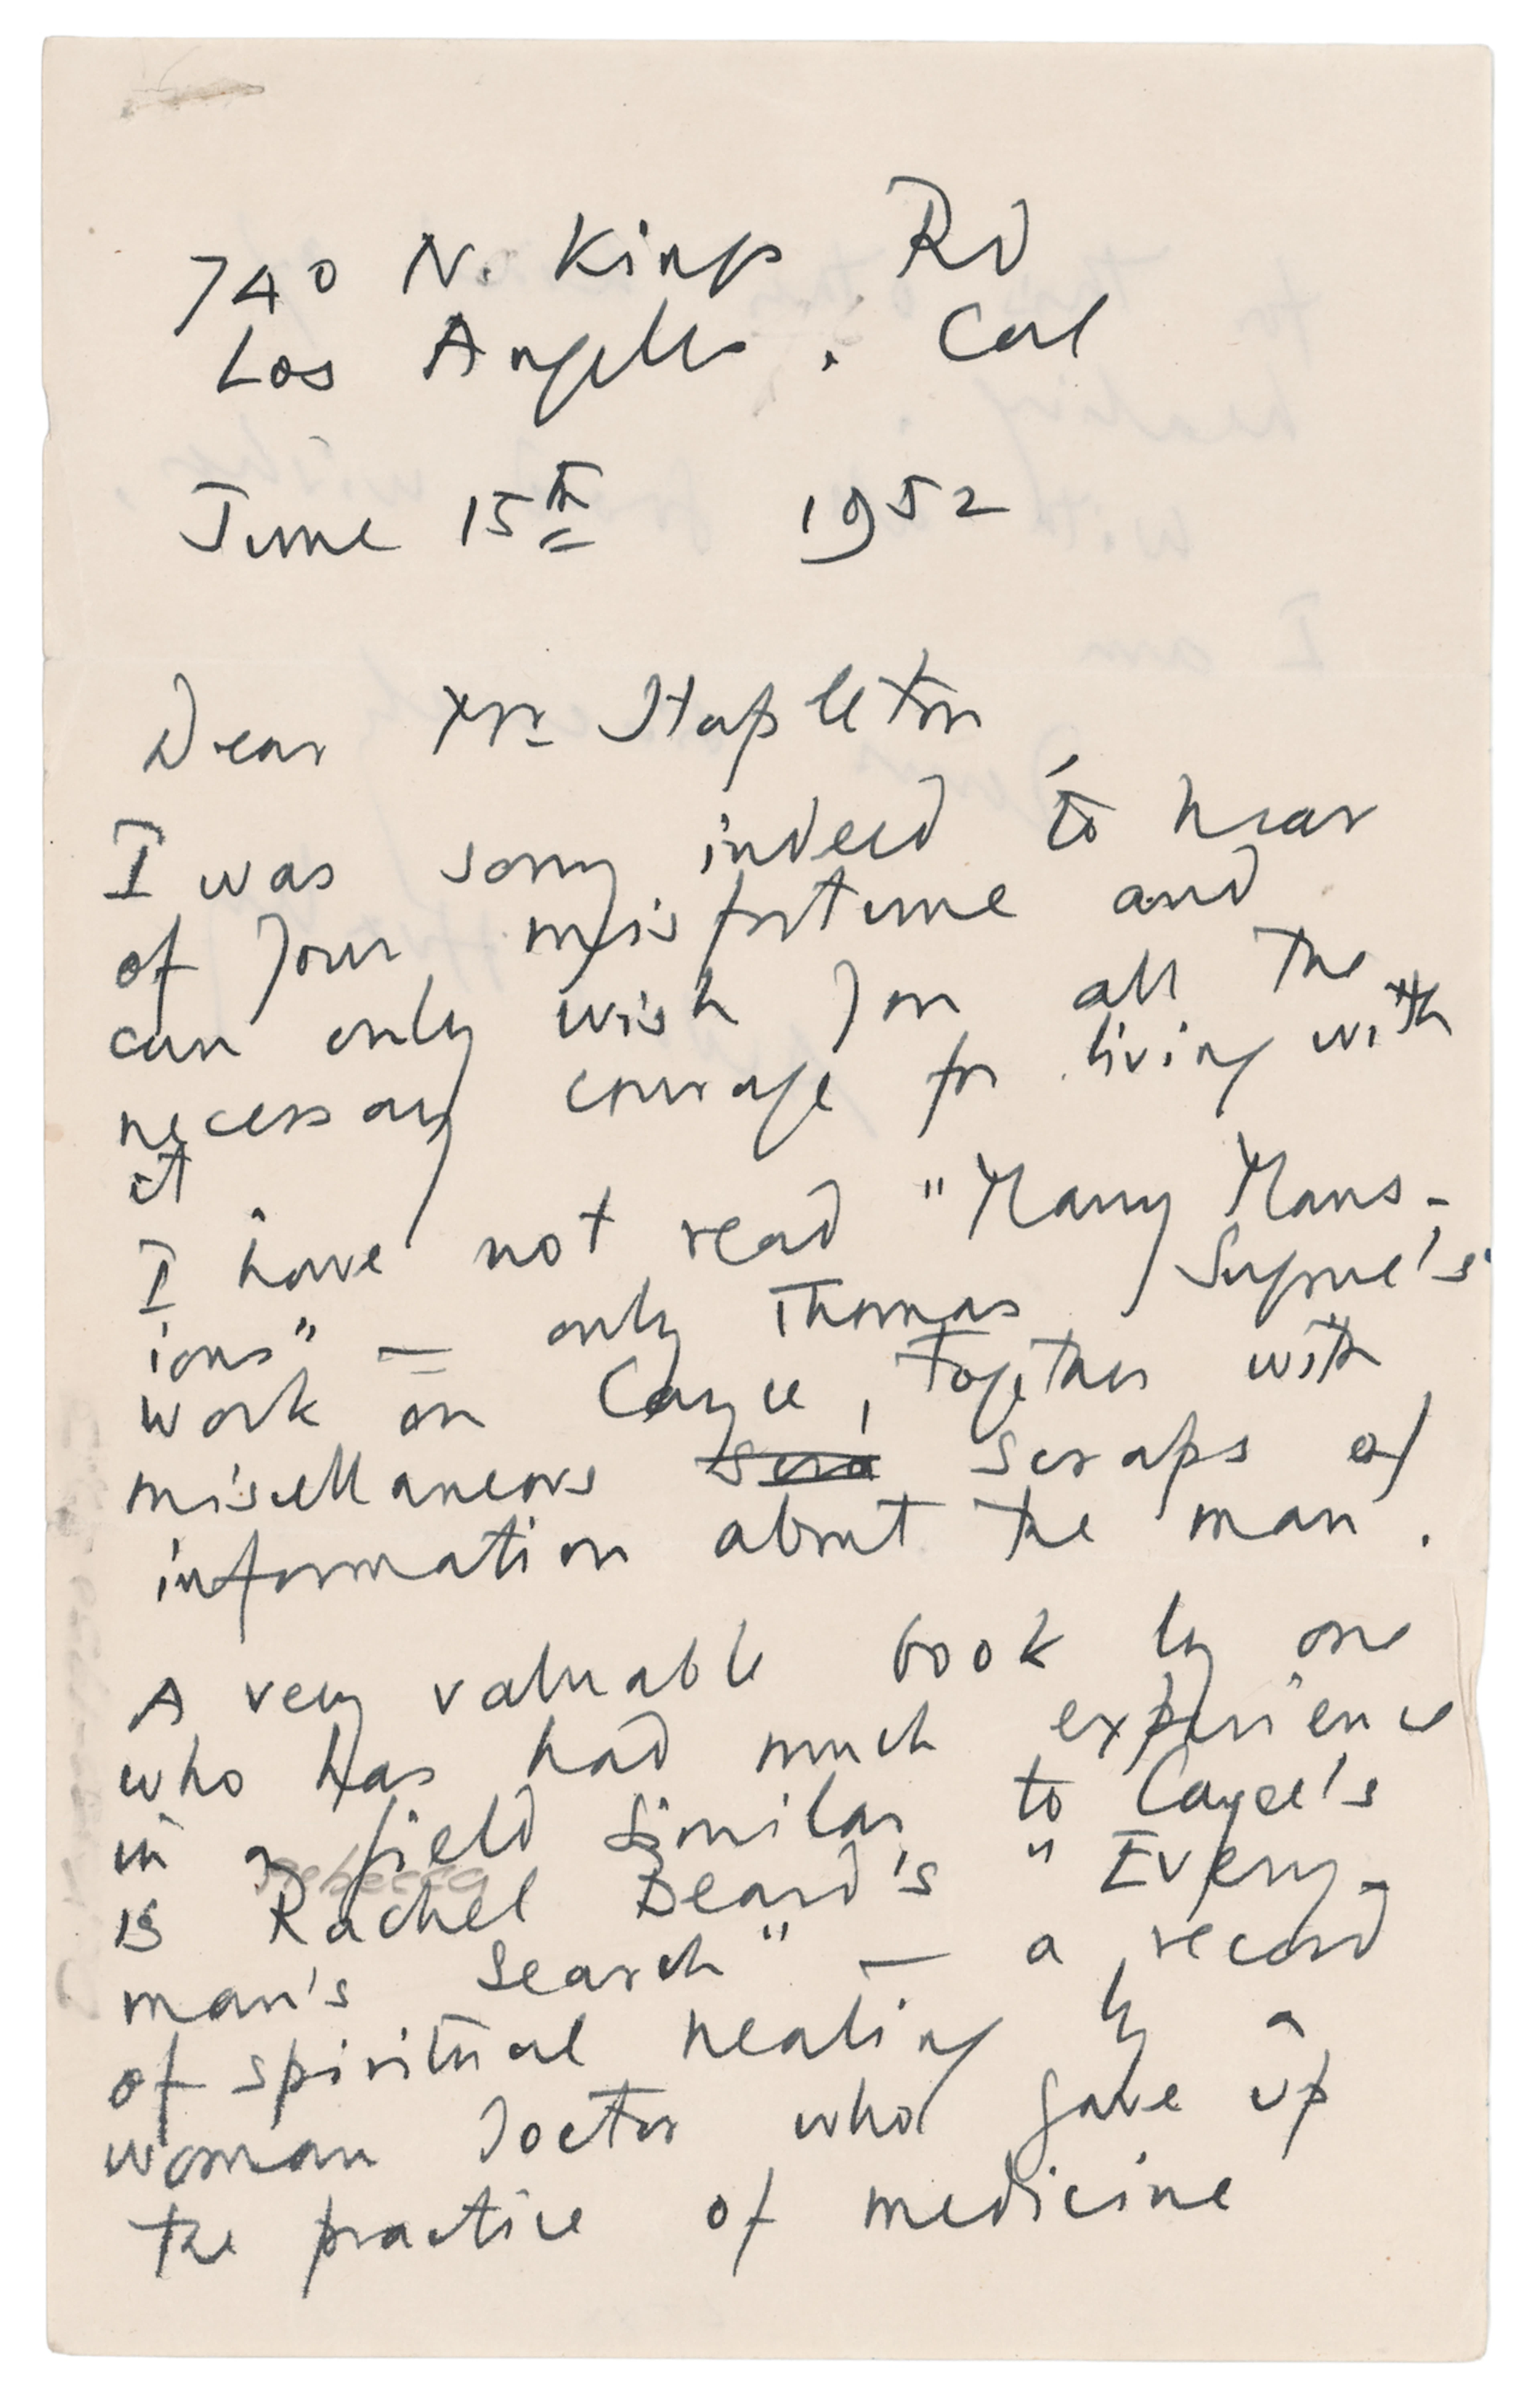 740 N. Kings Rd
Los Angeles. Cal
June 15th 1952
Dear Mr Stapleton
I was sorry indeed to hear
of your misfortune and
can only wish you all the
necessary courage for living with
it.
I have not read "Many Mans-
ions" — only Thomas Sugrue's
work on Cayce, together with
miscellaneous scraps of
information about the man.
A very valuable book by one
who has had much experience
in a field similar to Cayce's
Rebecca
is Rachel Beard's "Every-
man's Search" — a record
of spiritual healing by a
woman doctor who gave up
the practice of medicine